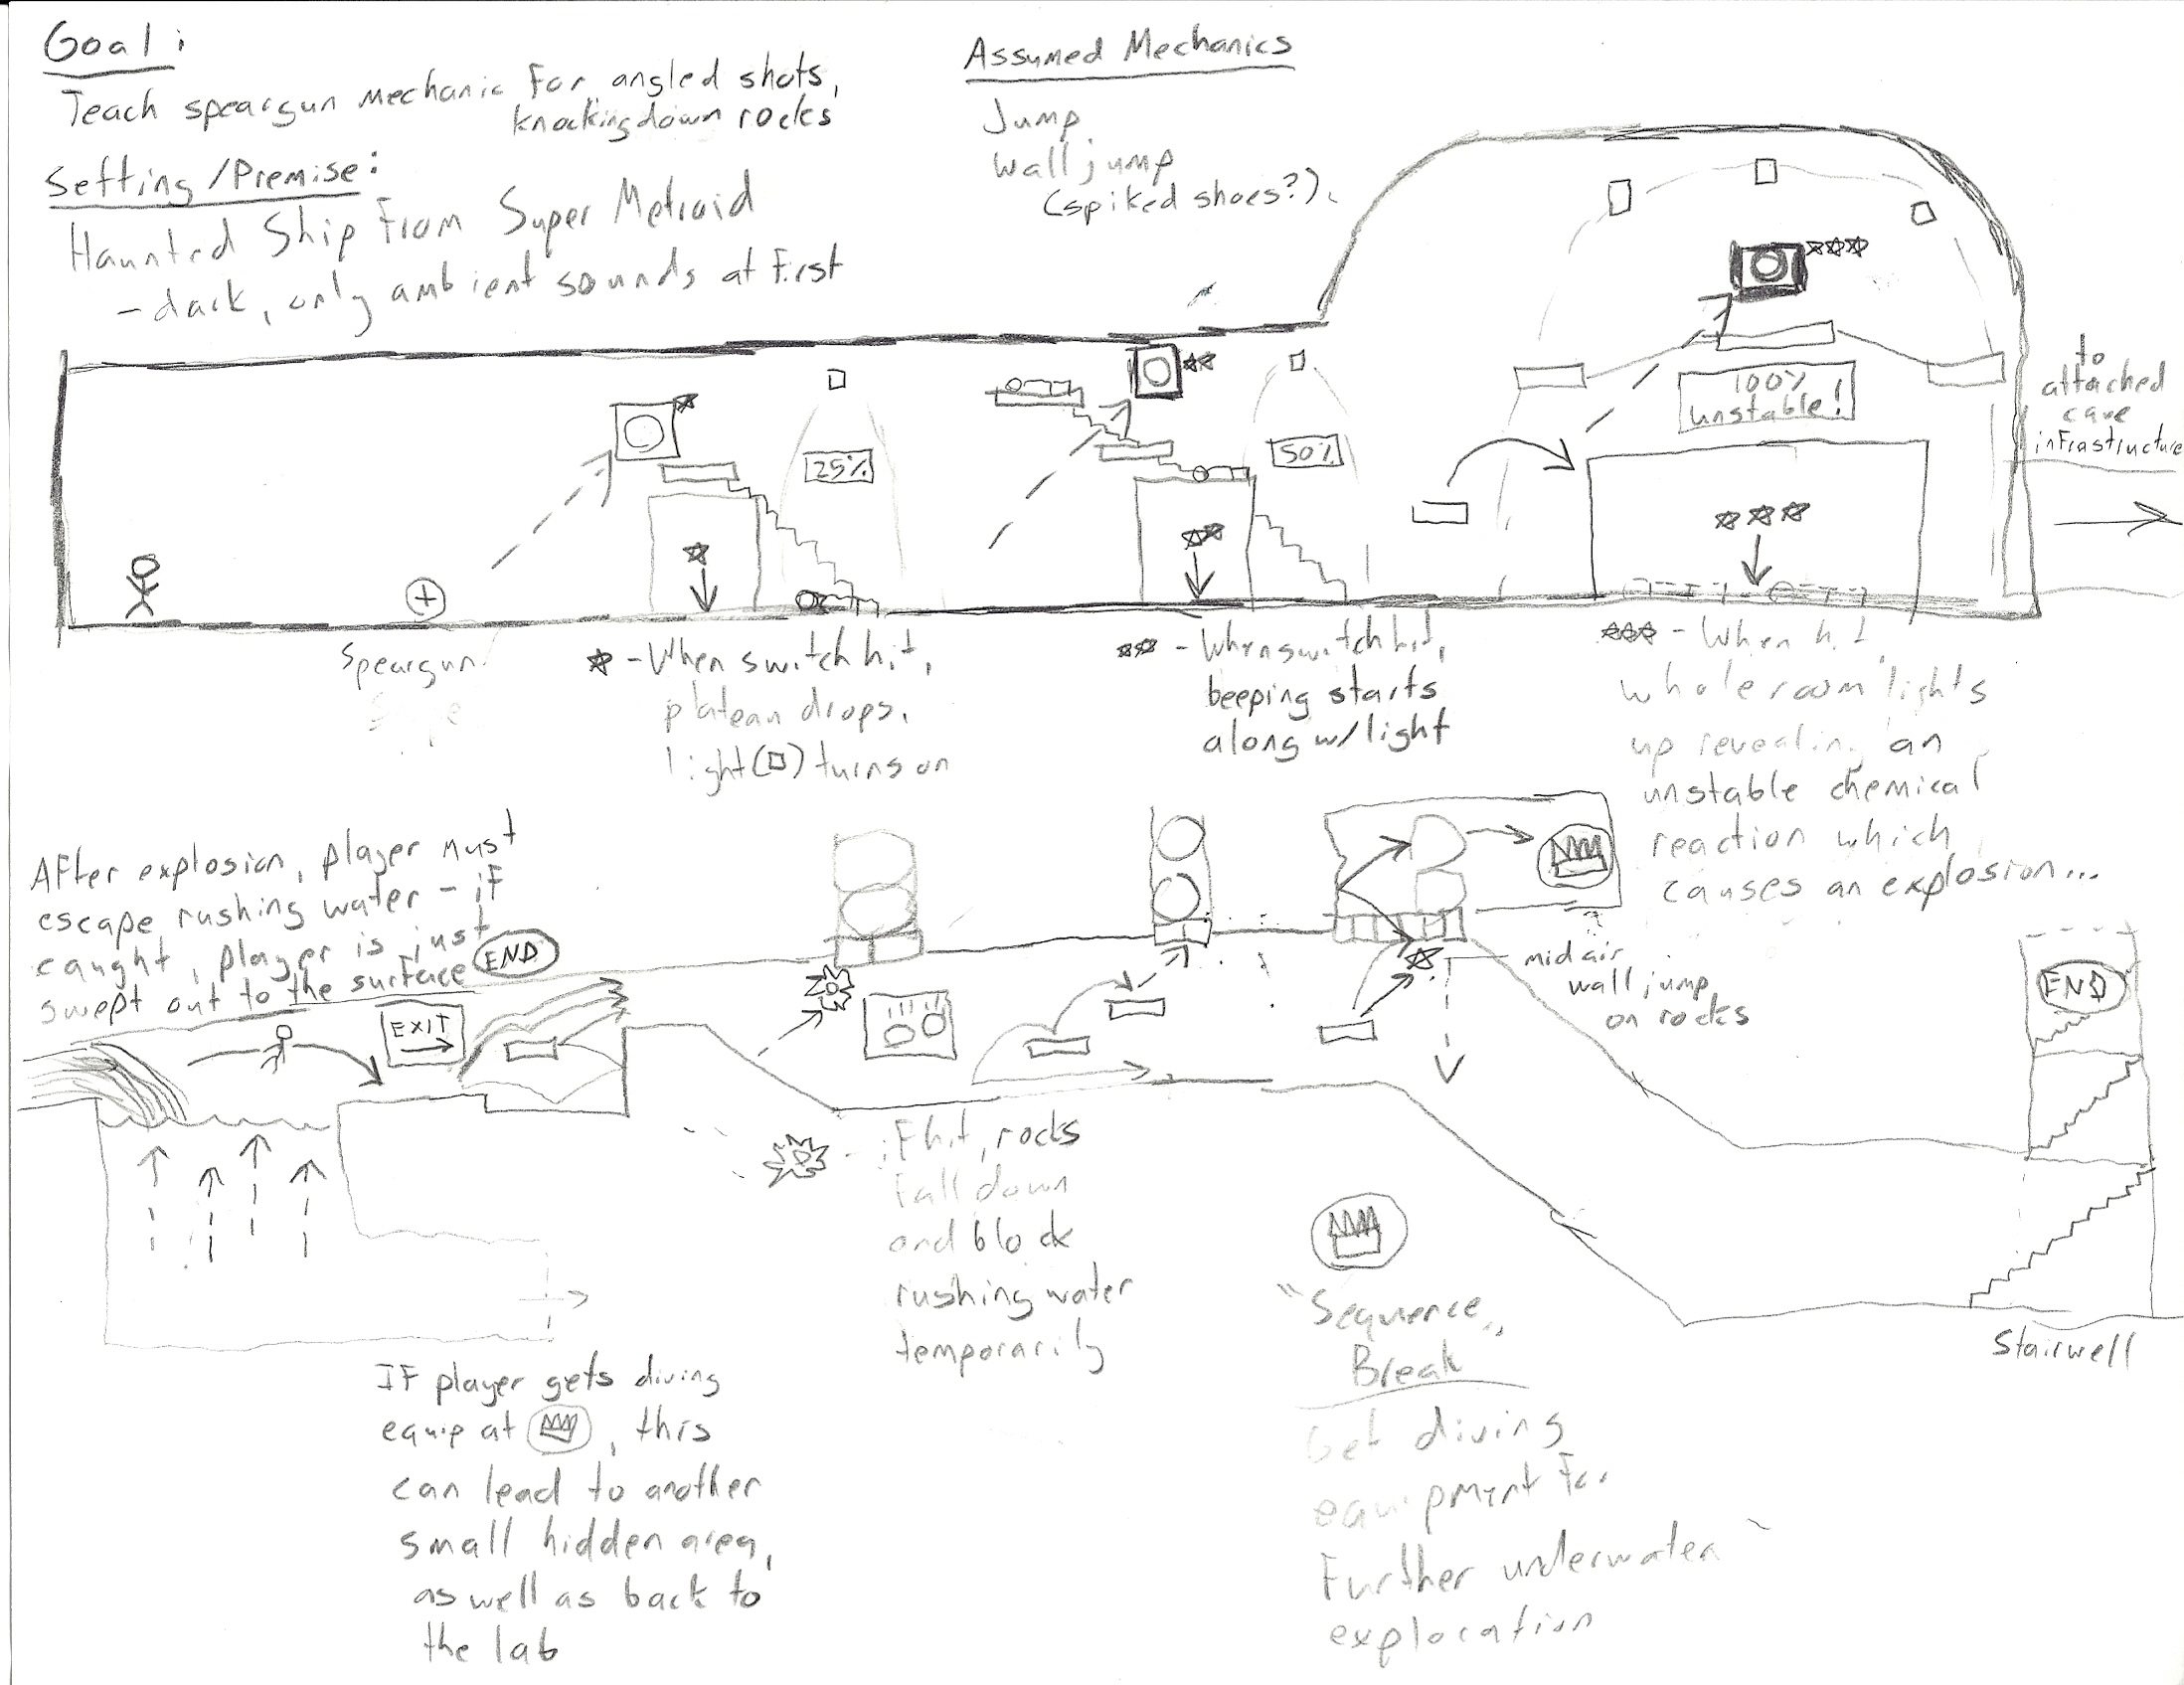 Goal:
Teach speargun mechanic for angled shots,
knocking down rocks
Setting/Premise:
Haunted Ship From Super Metroid
- dark, only ambient sounds at first
Assumed Mechanics
Jump
wall jump
(spiked shoes?)
25%
50%
100%
unstable!
to
attached
cave
infrastructure
Speargun
- When switch hit,
plateau drops,
light(□) turns on
- When switch hit,
beeping starts
along w/ light
- When hit,
whole room lights
up revealing an
unstable chemical
reaction which
causes an explosion...
After explosion, player must
escape rushing water - if
caught, player is just
swept out to the surface
END
EXIT
mid air
wall jump
on rocks
END
Stairwell
- if hit, rocks
fall down
and block
rushing water
temporarily
"Sequence
Break"
Get diving
equipment for
further underwater
explocation
IF player gets diving
equip at , this
can lead to another
small hidden area,
as well as back to
the lab